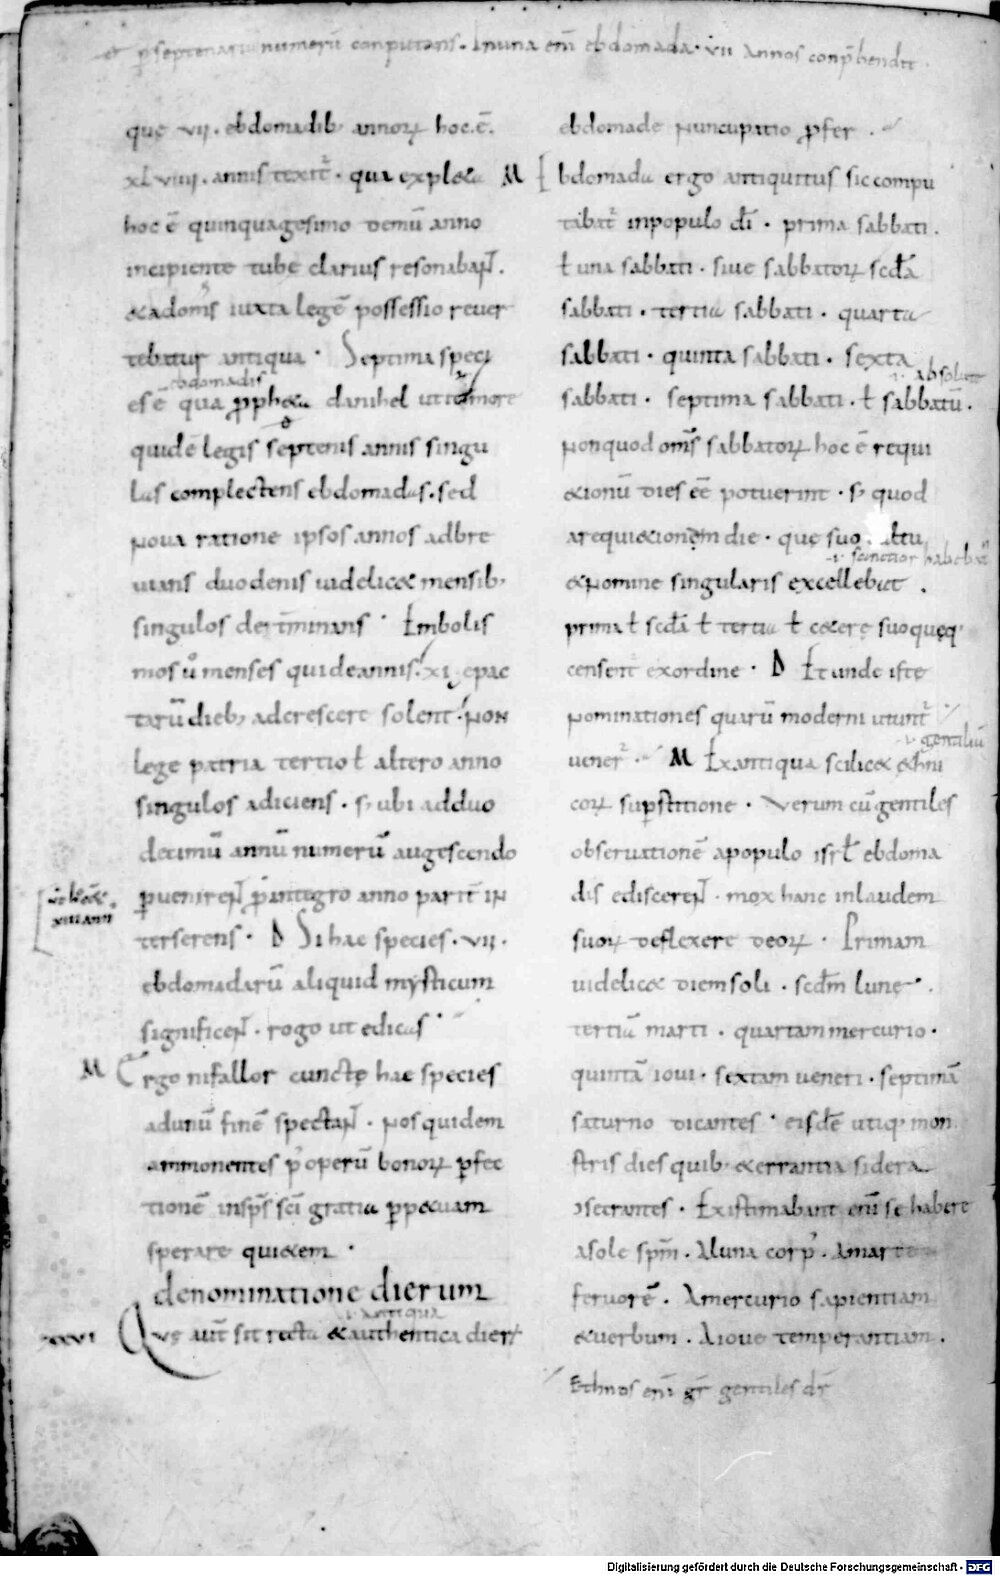 et p̱ septenariū numerū conputans · In una eni᷎ ebdomada · vii annos conp̄hendit ·
quę vii · ebdomadib; annoꝝ hoc · ē ·
xl viiii · annis texit᷑ · qua expl&a
hoc ē quinquagesimo demū anno
incipiente tubę clarius resonabaɴ̄t ·
& ad om̄s iuxta legē possessio reuer
tebatur antiqua · Septima speci
ebdomadis
es ē qua ꝓph&a danihel utit᷑ more
quidē legis septenis annis singu
las complectens ebdomadas · sed
noua ratione ipsos annos adbre
uians duodenis uidelic& mensib;
singulos det̄minans · Embolis
mos ů menses qui de annis · xi · epac
tarū dieb; adcrescere solent · non
lege patria tertio ł altero anno
singulos adiciens · s; ubi ad duo
decimū annū numerū augescendo
ꝑuenireɴ̄t ꝓ integro anno parit̄ in
xiii ann
terserens · D Si hae species · vii ·
ebdomadarū aliquid mysticum
significeɴ̄t · rogo ut edicas ·
M Ergo ni fallor cunctę hae species
ad unū finē spectaɴ̄t · nos quidem
ammonentes p᷒ operū bonoꝝ ꝑfec
tionē in sp̄s sc̄i gratia ꝑp&uam
sperare qui&em ·
de nominatione dierum
.i. antiqua
xxvi Quę aut̄ sit recta & authentica dierꝝ
ebdomade nuncupatio ꝓfer ·
M Ebdomada ergo antiquitus sic compu
tibat᷑ in populo dī · prima sabbati ·
ł una sabbati · siue sabbatoꝝ scd̄a
sabbati · tertia sabbati · quarta
sabbati · quinta sabbati · sexta
.i. absolute
sabbati · septima sabbati · ł sabbatū ·
non quod om̄s sabbatoꝝ hoc ē requi
&ionū dies eē potuerint · s; quod
a requi&ionem die · quę suo cultu
.i. sanctior habebat᷑
& nomine singularis excellebat ·
prima ł scd̄a ł tertia ł c&erę suo quęq;
censent᷑ ex ordine · D Et unde istę
nominationes quarū moderni utunt᷑
.i. gentiliū
uener᷑ · M Ex antiqua scilic& &hni
coꝝ supstitione · Verum cū gentiles
obseruationē a populo isrł ebdoma
dis ediscereɴ̄t · mox hanc in laudem
suoꝝ deflexere deoꝝ · Primam
uidelic& diem soli · scd̄m lunę ·
tertiā marti · quartam mercurio ·
quintā ioui · sextam ueneri · septimā
saturno dicantes · eisdē utiq; mon
stris dies quib; & errantia sidera
ↄsecrantes · Existimabant eni᷎ se habere
a sole spm̄ · A luna corp᷒ · A marte
feruorē · A mercurio sapientiam
& uerbum · A ioue temperantiam ·
Ethnos eni᷎ gr̄ gentiles dr̄
Digitalisierung gefördert durch die Deutsche Forschungsgemeinschaft - DFG